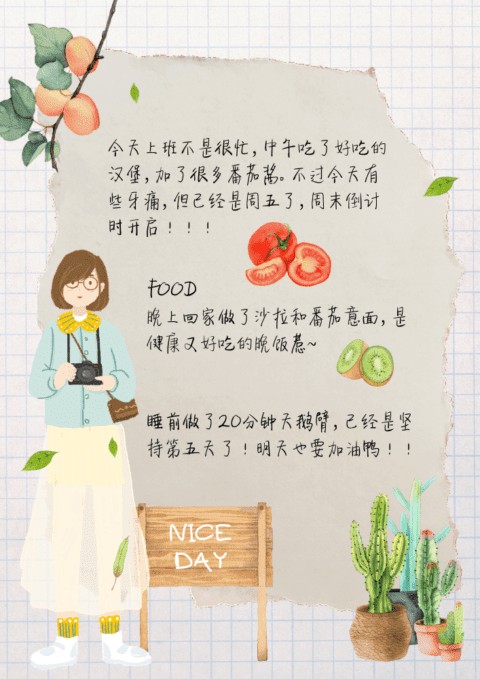 今天上班不是很忙，中午吃了好吃的
汉堡，加了很多番茄酱。不过今天有
些牙痛，但已经是周五了，周末倒计
时开启！！！
FOOD
晚上回家做了沙拉和番茄意面，是
健康又好吃的晚饭惹~
睡前做了20分钟天鹅臂，已经是坚
持第五天了！明天也要加油鸭！！
NICE
DAY